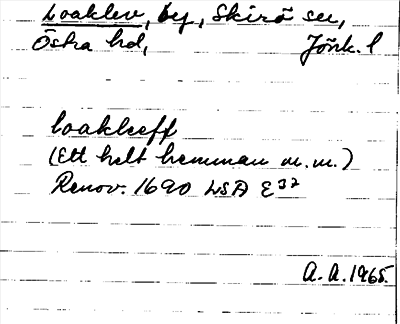 Loaklev, by, Skirö sn,
Östra hd, Jönk. l
loakleeff
(Ett helt hemman m.m.)
Renov. 1690 LSA E32
A.A. 1965.